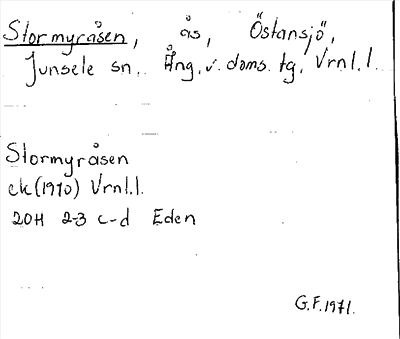 Stormyråsen, ås, Östansjö,
Junsele sn. Ång. v. doms. tg, Vrnl.l.
Stormyråsen
ek(1970) Vrnl.l.
20H 2-3 c-d Eden
G.F.1971.